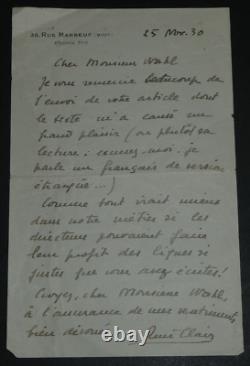 38, RUE MARBEUF (VIIIᵉ)
25 Nov. 30
Cher Monsieur Wahl
Je vous remercie beaucoup de
l'envoi de votre article dont
le texte m'a causé un
grand plaisir (ou plutôt sa
lecture: excusez-moi. je
parle un français de version
étrangère...)
Comme tout irait mieux
dans notre métier si les
directeurs pouvaient faire
leur profit des lignes si
justes que vous avez écrites!
Croyez, cher Monsieur Wahl,
à l'assurance de mes sentiments
bien dévoués. René Clair